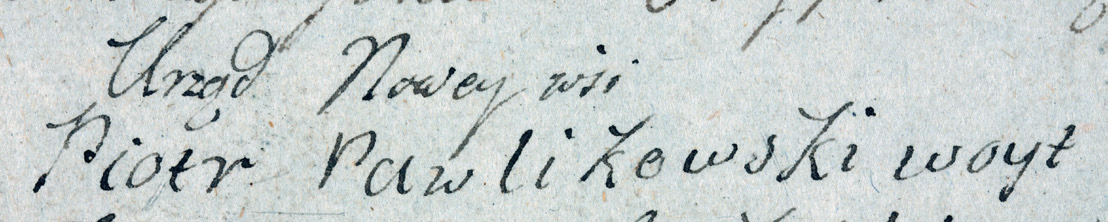 Urząd Nowey wsi
Piotr Pawlikowski woyt